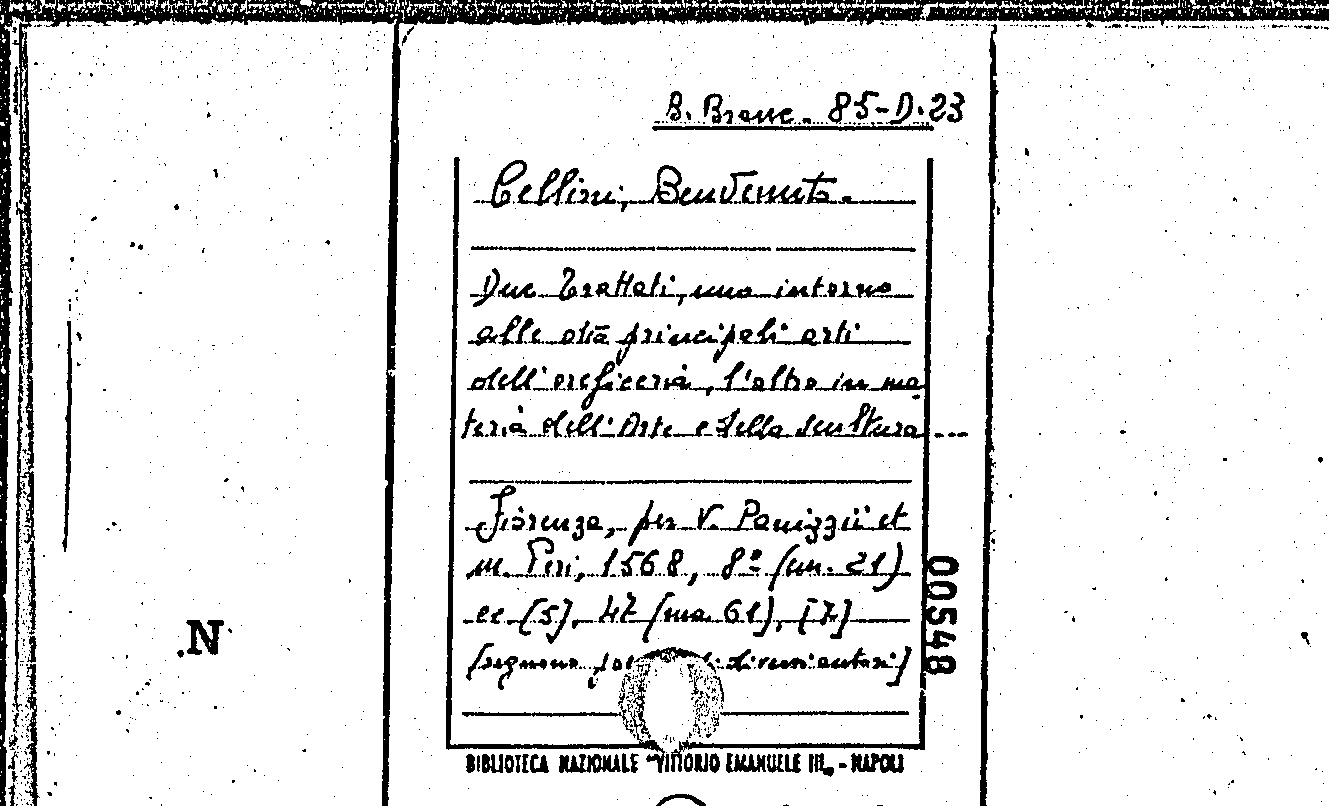 B. Branc. 85-D.23
Cellini, Benvenuto.
Due Trattati, uno intorno
alle otto principali arti
dell'oreficeria, l'altro in ma
teria dell'Arte e della scultura...
Fiorenza, per V. Panizzii et
M. Peri, 1568, 8º (cm. 21)
cc [5], 47 [ma 61], [7]
[segnano
00548
.N
BIBLIOTECA NAZIONALE "VITTORIO EMANUELE III„ - NAPOLI